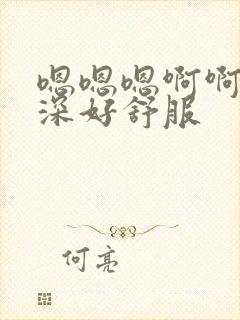 嗯嗯嗯啊啊
深好舒服
何亮